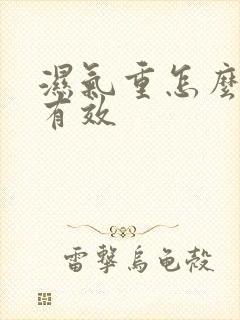 濕氣重怎麼
有效
雷擊烏龜殼